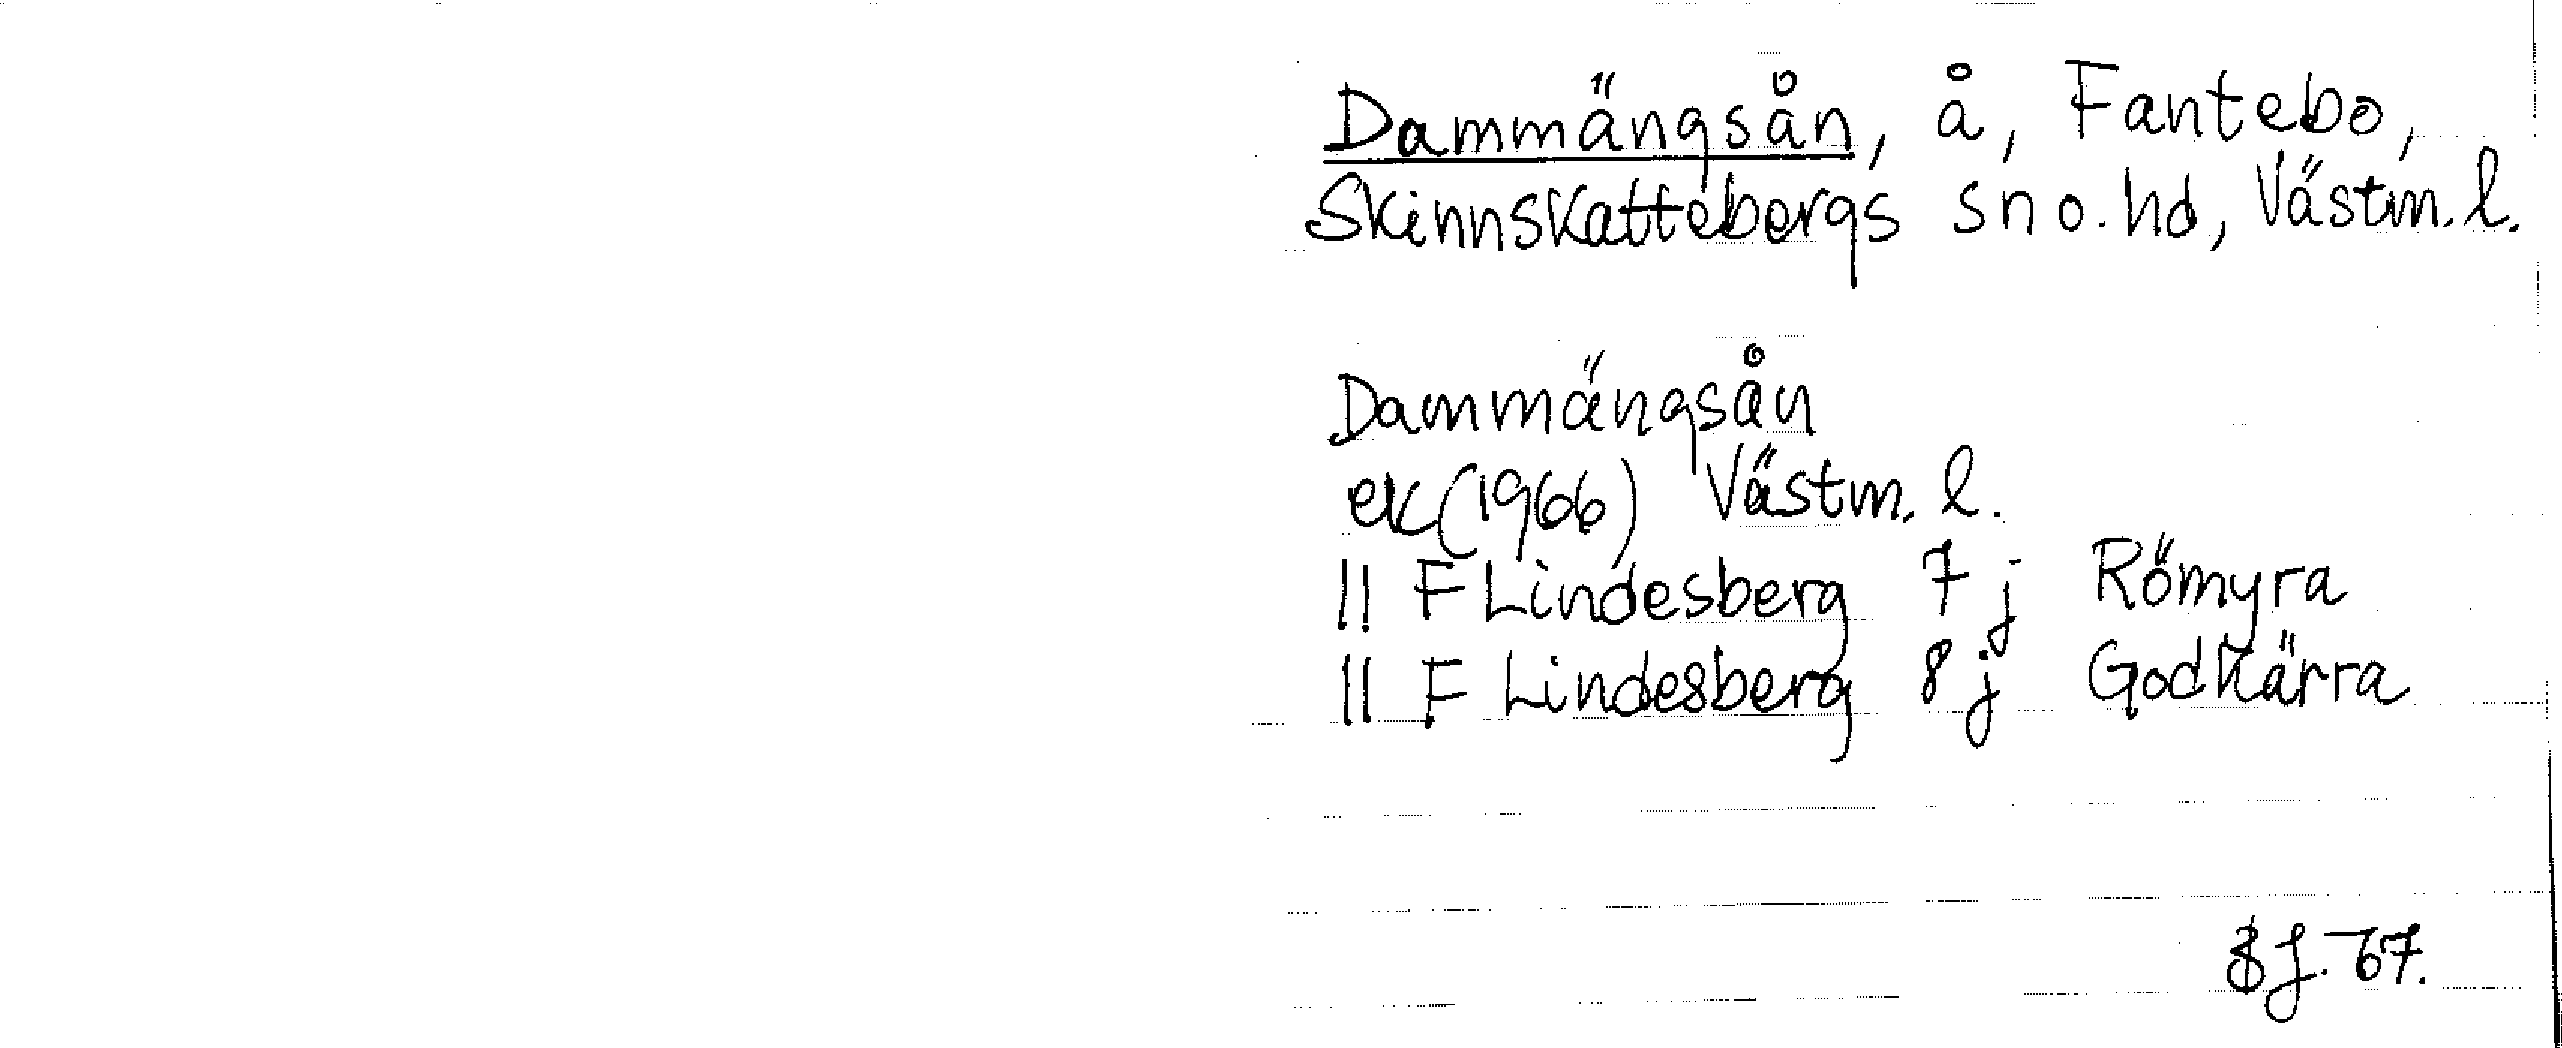 Dammängsån, å, Fantebo,
Skinnskattebergs sn o. hd, Västm. l.
Dammängsån
ek (1966) Västm. l.
|| F Lindesberg 7 j Römyra
|| F Lindesberg 8 j Godkärra
67.